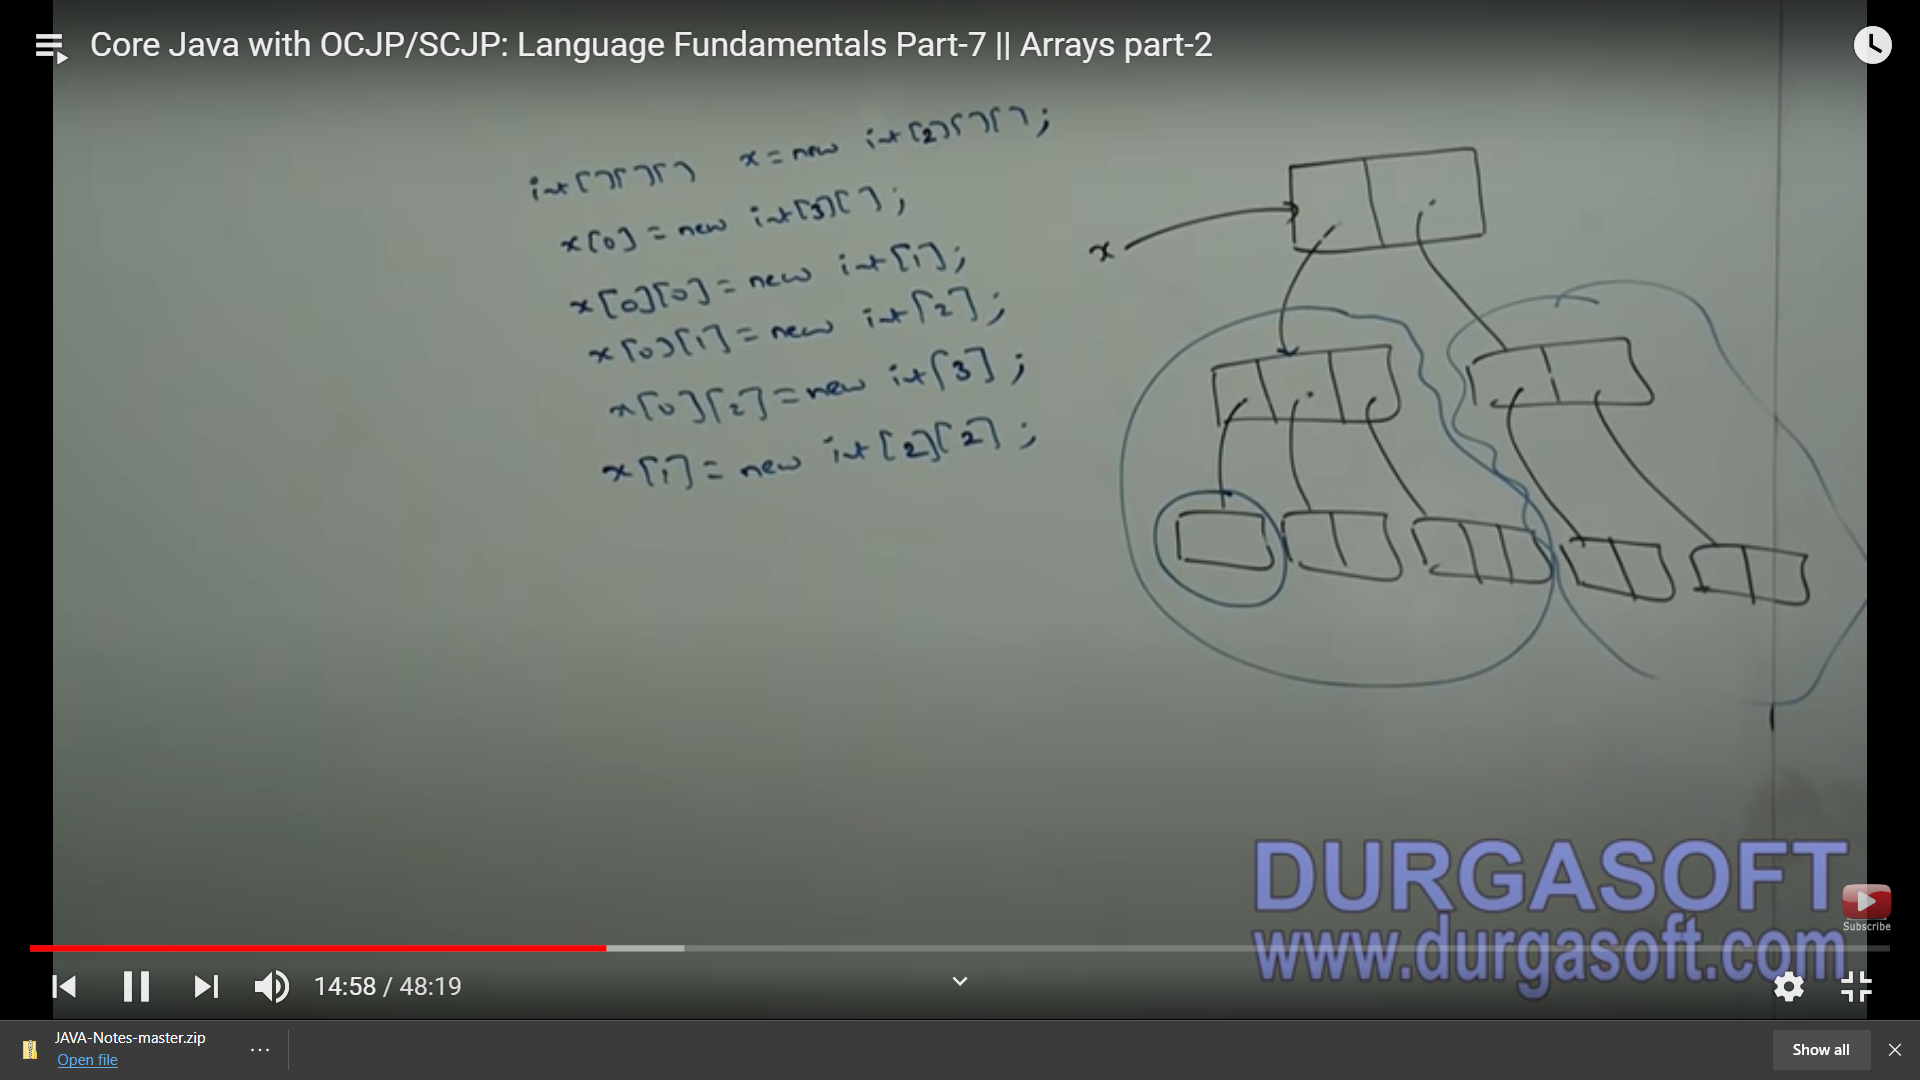 Core Java with OCJP/SCJP: Language Fundamentals Part-7 || Arrays part-2
int[][][] x = new int[2][][];
x[0] = new int[3][];
x[0][0] = new int[1];
x[0][1] = new int[2];
x[0][2] = new int[3];
x[1] = new int[2][2];
x
DURGASOFT
www.durgasoft.com
Subscribe
14:58 / 48:19
JAVA-Notes-master.zip
Open file
Show all